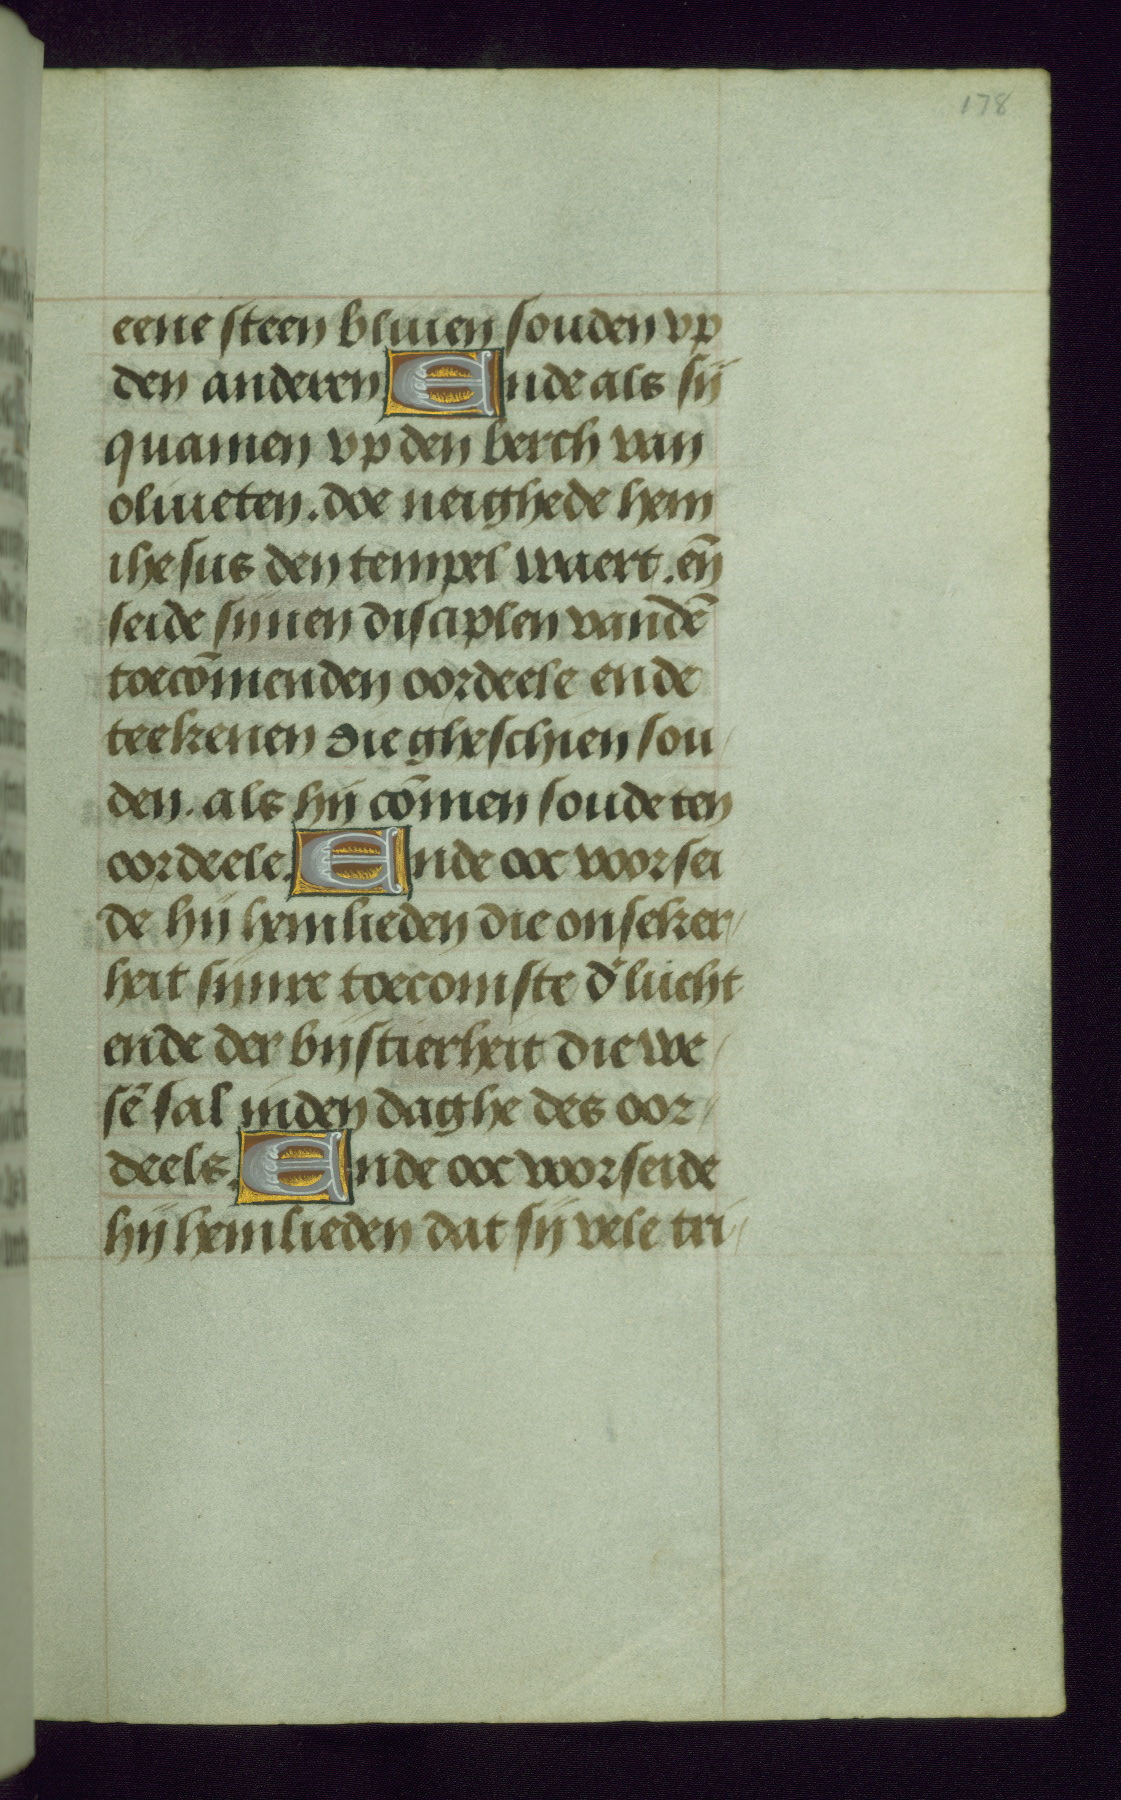 178
eene steen bliuen souden vp
den anderen. Ende als sij
quamen vp den berch van
oliueten. doe neighede hem
ihesus den tempel waert. en̄
seide sijnen disciplen vandē
toecōmenden oordeele ende
teekenen die gheschien sou/
den. als hij cōmen soude ten
oordeele. Ende ooc voorsei
de hij hemlieden die onseker//
heit sijnre toecomste d' lucht
ende der bijstierheit die we/
sē sal inden daghe des oor/
deels. Ende ooc voorseide
hij hemlieden dat sij vele tri//